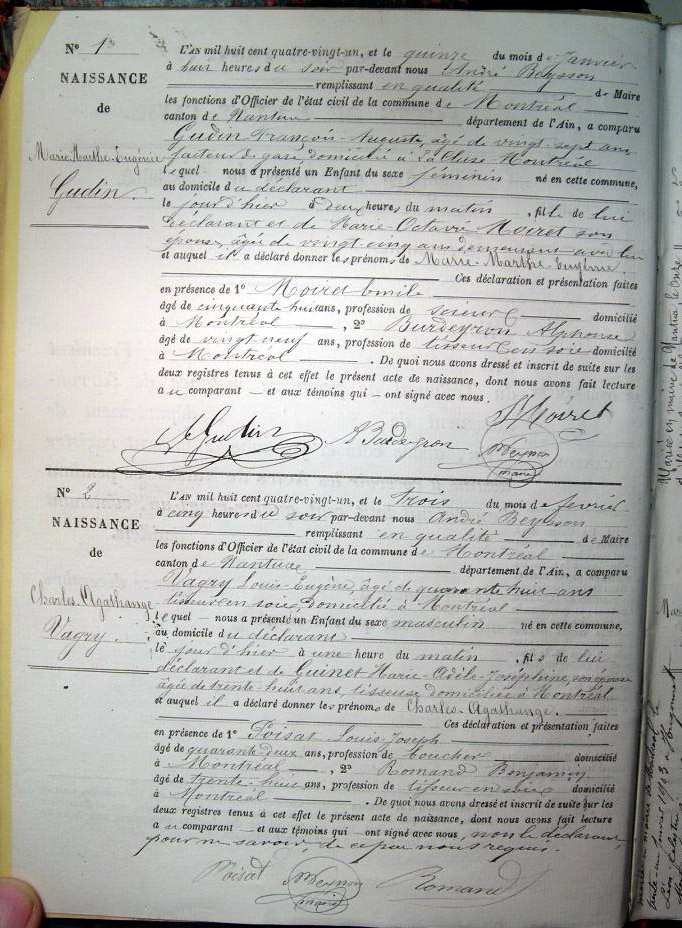 N° 1
NAISSANCE
de
Marie-Marthe-Eugénie
Gudin.
L'AN mil huit cent quatre-vingt-un, et le quinze du mois de Janvier
à huit heures du soir par-devant nous André Beysson
remplissant en qualité de Maire
les fonctions d'Officier de l'état civil de la commune de Montréal
canton de Nantua département de l'Ain, a comparu
Gudin François-Auguste, âgé de vingt-sept ans
facteur de gare, domicilié à La Cluse Montréal
lequel nous a présenté un Enfant du sexe féminin né en cette commune,
au domicile du déclarant
le jour d'hier à deux heures du matin, fille de lui
déclarant et de Marie Octavie Moiret son
épouse, âgée de vingt cinq ans demeurant avec lui
et auquel il a déclaré donner les prénoms de Marie-Marthe-Eugénie.
Ces déclaration et présentation faites
en présence de 1° Moiret Emile
âgé de cinquante huit ans, profession de domicilié
à Montréal, 2° Burdeyron Alphonse
âgé de vingt neuf ans, profession de tisseur en soie domicilié
à Montréal. De quoi nous avons dressé et inscrit de suite sur les
deux registres tenus à cet effet le présent acte de naissance, dont nous avons fait lecture
au comparant et aux témoins qui ont signé avec nous.
Moiret
Gudin A Burdeyron Beysson
maire
N° 2
NAISSANCE
de
Charles-Agathange
Vagry.
L'AN mil huit cent quatre-vingt-un, et le trois du mois de février
à cinq heures du soir par-devant nous André Beysson
remplissant en qualité de Maire
les fonctions d'Officier de l'état civil de la commune de Montréal
canton de Nantua département de l'Ain, a comparu
Vagry Louis-Eugène, âgé de quarante huit ans
tisseur en soie, domicilié à Montréal
lequel nous a présenté un Enfant du sexe masculin né en cette commune,
au domicile du déclarant
le jour d'hier à une heure du matin, fils de lui
déclarant et de Guinet Marie-Adèle-Joséphine, son épouse
âgée de trente-huit ans, tisseuse domiciliée à Montréal
et auquel il a déclaré donner les prénoms de Charles-Agathange.
Ces déclaration et présentation faites
en présence de 1° Poisat Louis-Joseph
âgé de quarante deux ans, profession de boucher domicilié
à Montréal, 2° Romand Benjamin
âgé de trente-huit ans, profession de tisseur en soie domicilié
à Montréal. De quoi nous avons dressé et inscrit de suite sur les
deux registres tenus à cet effet le présent acte de naissance, dont nous avons fait lecture
au comparant et aux témoins qui ont signé avec nous, non le déclarant
pour ne savoir, de ce par nous requis.
Poisat Beysson Romand
maire
Mariée en mairie de Nantua le onze